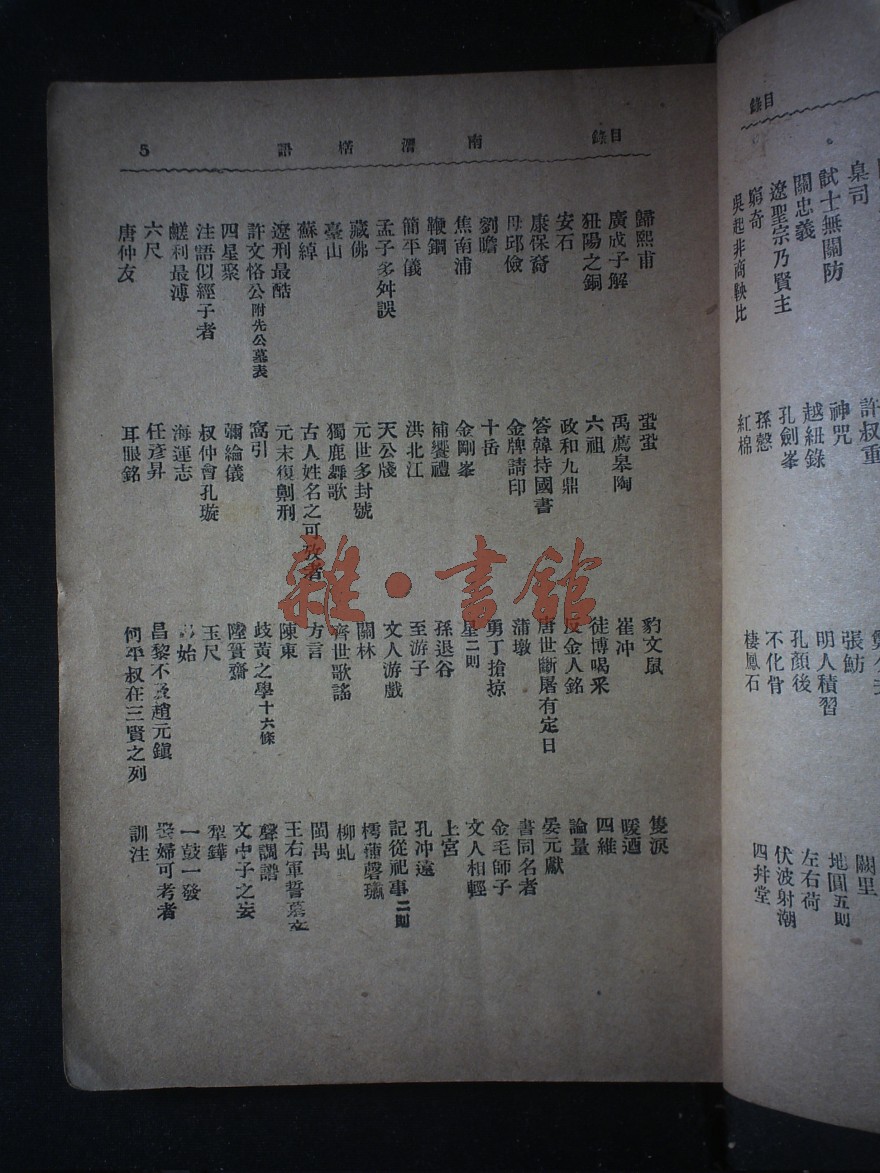 目錄
南漘楛語
5
歸熙甫
廣成子解
狃陽之銅
安石
康保裔
毋邱儉
劉瞻
焦南浦
鞭鐧
簡平儀
孟子多舛誤
藏佛
臺山
蘇綽
遼刑最酷
許文恪公附先公墓表
四星聚
注語似經子者
鹺利最溥
六尺
唐仲友
蛩蛩
禹薦皋陶
六祖
政和九鼎
答韓持國書
金牌請印
十岳
金剛峯
補饗禮
洪北江
天公牋
元世多封號
獨鹿舞歌
古人姓名之可攷者
元末復劓刑
窩引
彌綸儀
叔仲會孔璇
海運志
任彥昇
耳眼銘
豹文鼠
崔冲
徒博喝釆
反金人銘
唐世斷屠有定日
蒲墩
勇丁搶掠
星二則
孫退谷
至游子
文人游戲
關林
齊世歌謠
方言
陳東
歧黃之學十六條
陸簣齋
玉尺
始
昌黎不及趙元鎭
何平叔在三賢之列
隻淚
暖迺
四維
論量
晏元獻
書同名者
金毛師子
文人相輕
上宮
孔冲遠
記從祀事二則
樗蒲磬瓛
柳虬
閩禺
王右軍誓墓文
聲調譜
文中子之妄
犁鏵
一鼓一發
婦可考者
訓注
目錄
臬司
試士無關防
關忠義
遼聖宗乃賢主
窮奇
吳起非商鞅比
許叔重
神咒
越紐錄
孔劍峯
孫慤
紅棉
張魴
明人積習
孔顏後
不化骨
棲鳳石
闕里
地圓五則
左右荷
伏波射潮
四井堂
雜·書館